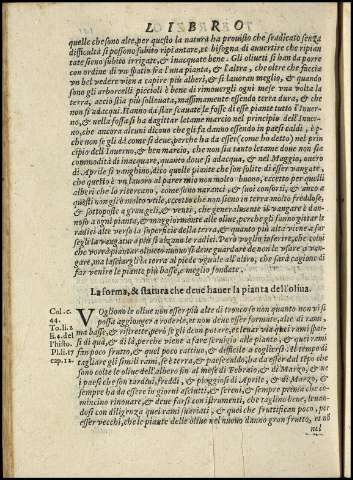 LIBRO
quelle che sono alte, per questo la natura ha provisto che sradicato senza
difficultà si possono subito ripiantare, et bisogna di avvertire che ripian
tate sieno subito irrigate, & inacquate bene. Gli oliveti si han da porre
con ordine di un spatio fra l'una pianta, & l'altra, che oltre che faccia
un bel vedere vien a capire più alberi, & si lavoran meglio, & quando
sono gli arborcelli piccioli è bene di rimovergli ogni mese una volta la
terra, acciò stia più sollevata, massimamente essendo terra dura, & che
non si adacqui. Hanno da star scavate le fosse di esse piante tutto l'Inver-
no, & nella fossa si ha da gittar letame marcio nel principio dell'Inver
no, che ancora alcuni dicono che gli fa danno essendo in paesi caldi,
che non se gli dè come si deve, perche ha da esser (come ho detto) nel prin
cipio dell'Inverno, & ben marcio, che non sia tanto letame dove non sia com
modità di inacquare, quanto dove si adacqua, & nel Maggio, overo
di Aprile si vanghino, dico quelle piante che son solite di esser vangate,
che questo è un lavoro al parer mio non molto buono, eccetto per quelli
alberi che lo ritercano, come sono naranci, & suoi consorti, & anco a
questi non gli è molto utile, eccetto che non sieno in terra molto freddose,
& sottoposte a grangeli, & venti, che generalmente il vangare è dan-
noso a ogni pianta, & maggiormente alle olive, perche gli fanno gittar le
radici alte verso la superficie della terra, & quanto più alta viene a far
segli la vangatura più si alzano le radici. Però voglio inferire, che color
che vorranno piantar oliveto nuovo si deve guardare da non le usare a van-
gare, ma lasciargli la terra al piede uguale all'altra, che sarà cagione di
far venire le piante più basse, e meglio fondate.
La forma, & statura che deve haver la pianta dell'oliva.
Col. c.
44.
To. li. 2
li. 4. del
Phisto.
Pli. li. 17
cap. 11.
VOgliono le olive non esser più alte di tronco se non quanto non vi si
possa aggionger a roderle, et non deve esser formate, alte di rami,
ma basse, & ristrette, però se gli deve potare, et levar via quei rami spar-
si di quà, e di là, perche viene a fare servigio alle piante, & quei rami
fan poco frutto, & quel poco cattivo, & difficile a cogliersi: Il tempo di
tagliare gli simili rami, se è terra, & paese caldo, ha da esser dal tempo che
sono colte le olive dell'albero fin al mese di Febraio, & di Marzo, & ne
i paesi che son tardivi, freddi, & pioggiosi di Aprile, & di Marzo, &
sempre ha da essere in giorni asciutti, & sereni, & sempre prima che co-
mincino rinovare, & deve farsi con istrumenti, che taglino bene, levan-
dosi con diligenza quei rami svariati, & quei che fruttifican poco, per
esser vecchi, che le piante delle olive nel nuovo danno gran frutto, et no
nel